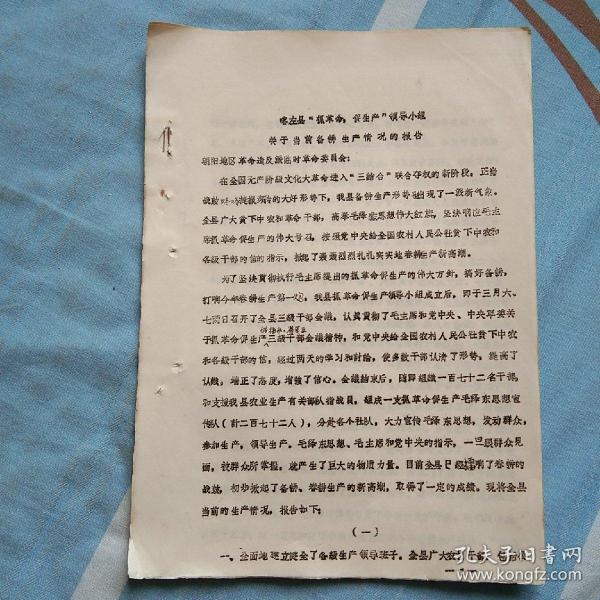 喀左县“抓革命，促生产”领导小组
关于当前备耕生产情况的报告
朝阳地区革命造反派临时革命委员会：
在全国无产阶级文化大革命进入“三结合”联合夺权的新阶段，正当
战鼓 的大好形势下，我县备耕生产形势出现了一派新气象。
全县广大贫下中农和革命干部，高举毛泽东思想伟大红旗，坚决响应毛主
席抓革命促生产的伟大号召，按照党中央给全国农村人民公社贫下中农和
各级干部的信的指示，掀起了轰轰烈烈扎扎实实地春耕生产新高潮。
为了坚决贯彻执行毛主席提出的抓革命促生产的伟大方针，搞好备耕，
打响今年春耕生产第一炮，我县抓革命促生产领导小组成立后，即于三月六、
七两日召开了全县三级干部会议，认真贯彻了毛主席和党中央、中央军委关
于抓革命促生产三级干部会议精神，和党中央给全国农村人民公社贫下中农
和各级干部的信，经过两天的学习和讨论，使多数干部认清了形势，提高了
认识，端正了态度，增强了信心。会议结束后，随即组织一百七十二名干部，
和支援我县农业生产有关部队指战员，组成一支抓革命促生产毛泽东思想宣
传队（计二百七十二人），分赴各个社队，大力宣传毛泽东思想，发动群众，
参加生产，领导生产。毛泽东思想、毛主席和党中央的指示，一旦跟群众见
面，被群众所掌握，就产生了巨大的物质力量。目前全县已经 响了春耕的
战鼓，初步掀起了备耕、春耕生产的新高潮，取得了一定的成绩。现将全县
当前的生产情况，报告如下：
（一）
一、全面地建立健全了各级生产领导班子。全县广大农村
孔夫子旧书网
www.kongfz.com